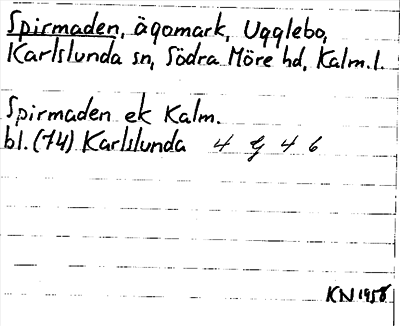 Spirmaden, ägomark, Ugglebo,
Karlslunda sn, Södra Möre hd, Kalm. l.
Spirmaden ek Kalm.
bl. (74) Karlslunda 4 G 4 6
KN 1958